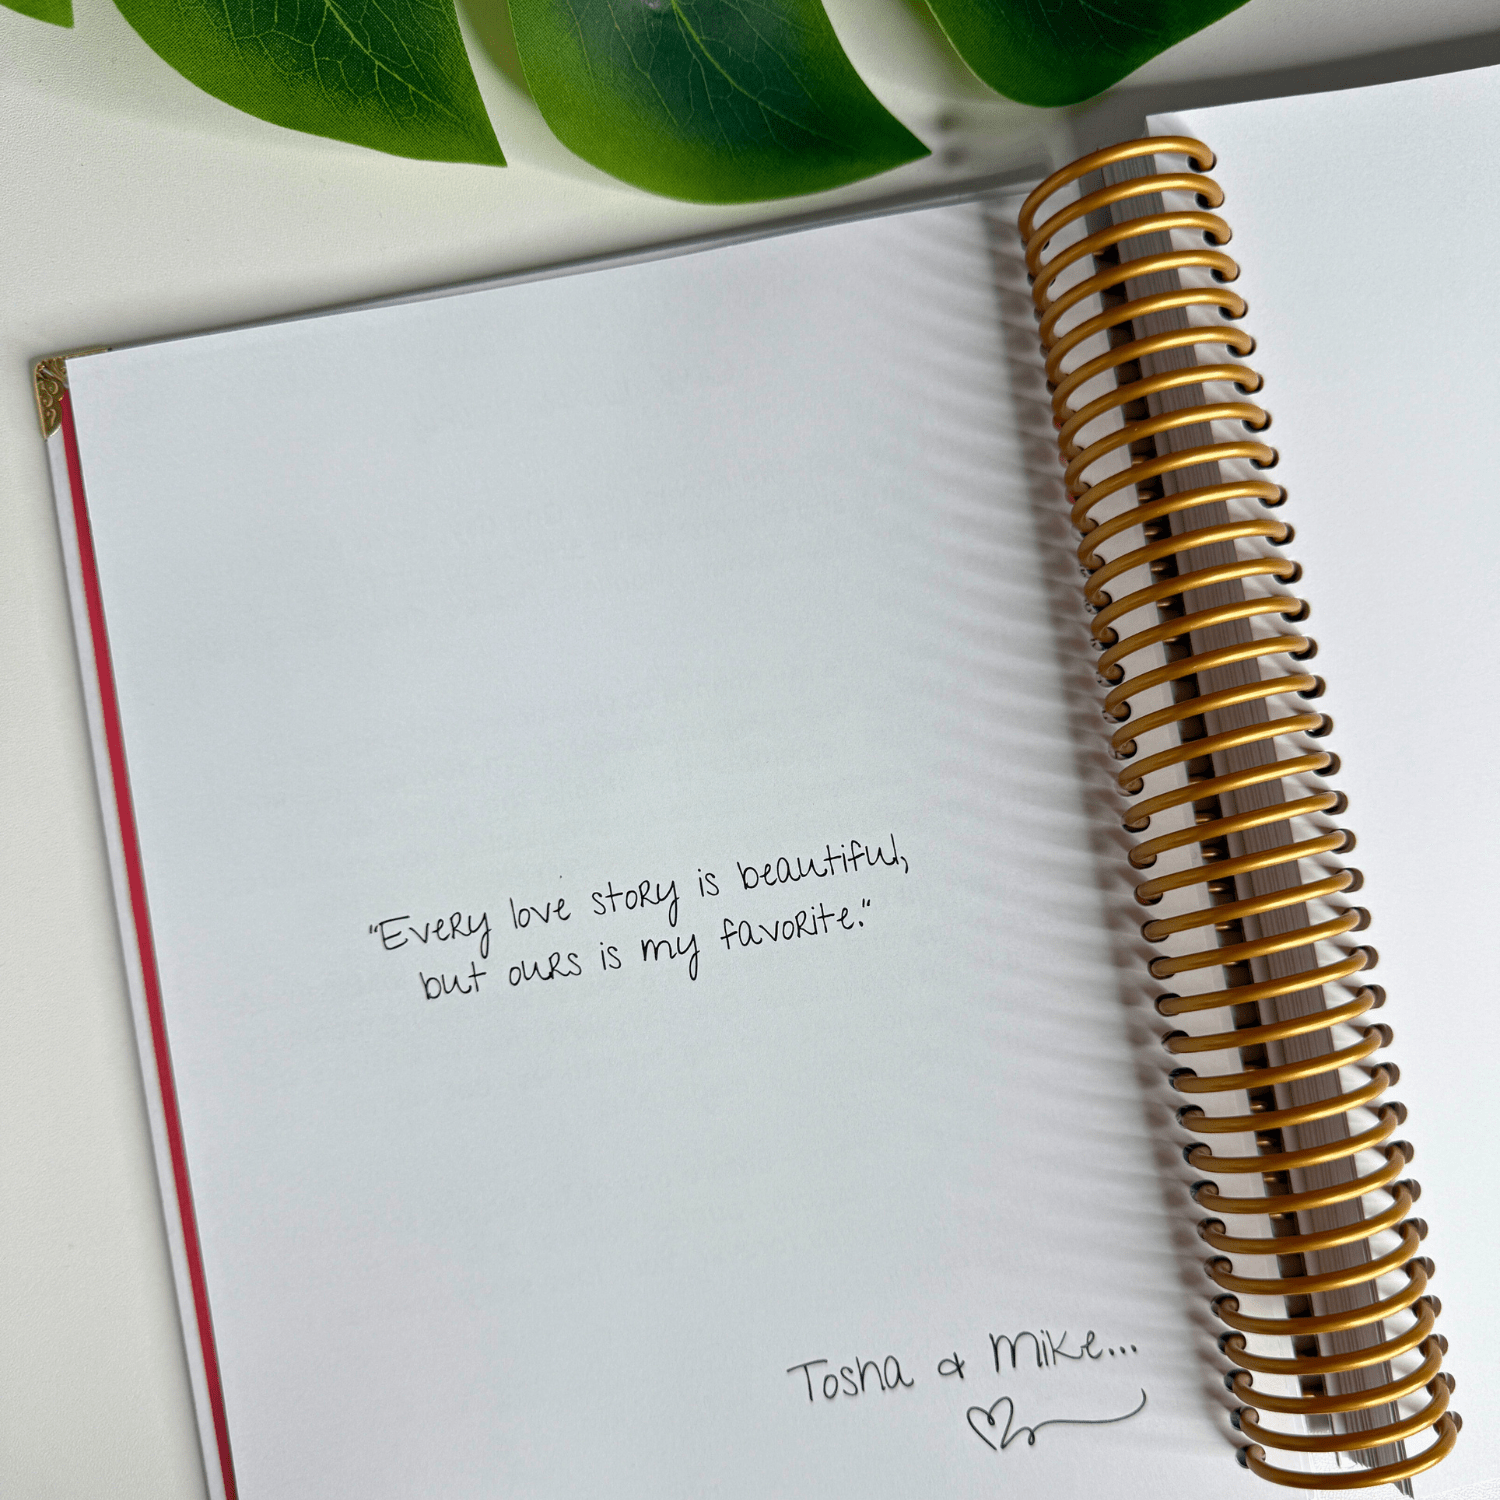 "Every love story is beautiful,
but ours is my favorite."
Tosha & Mike...